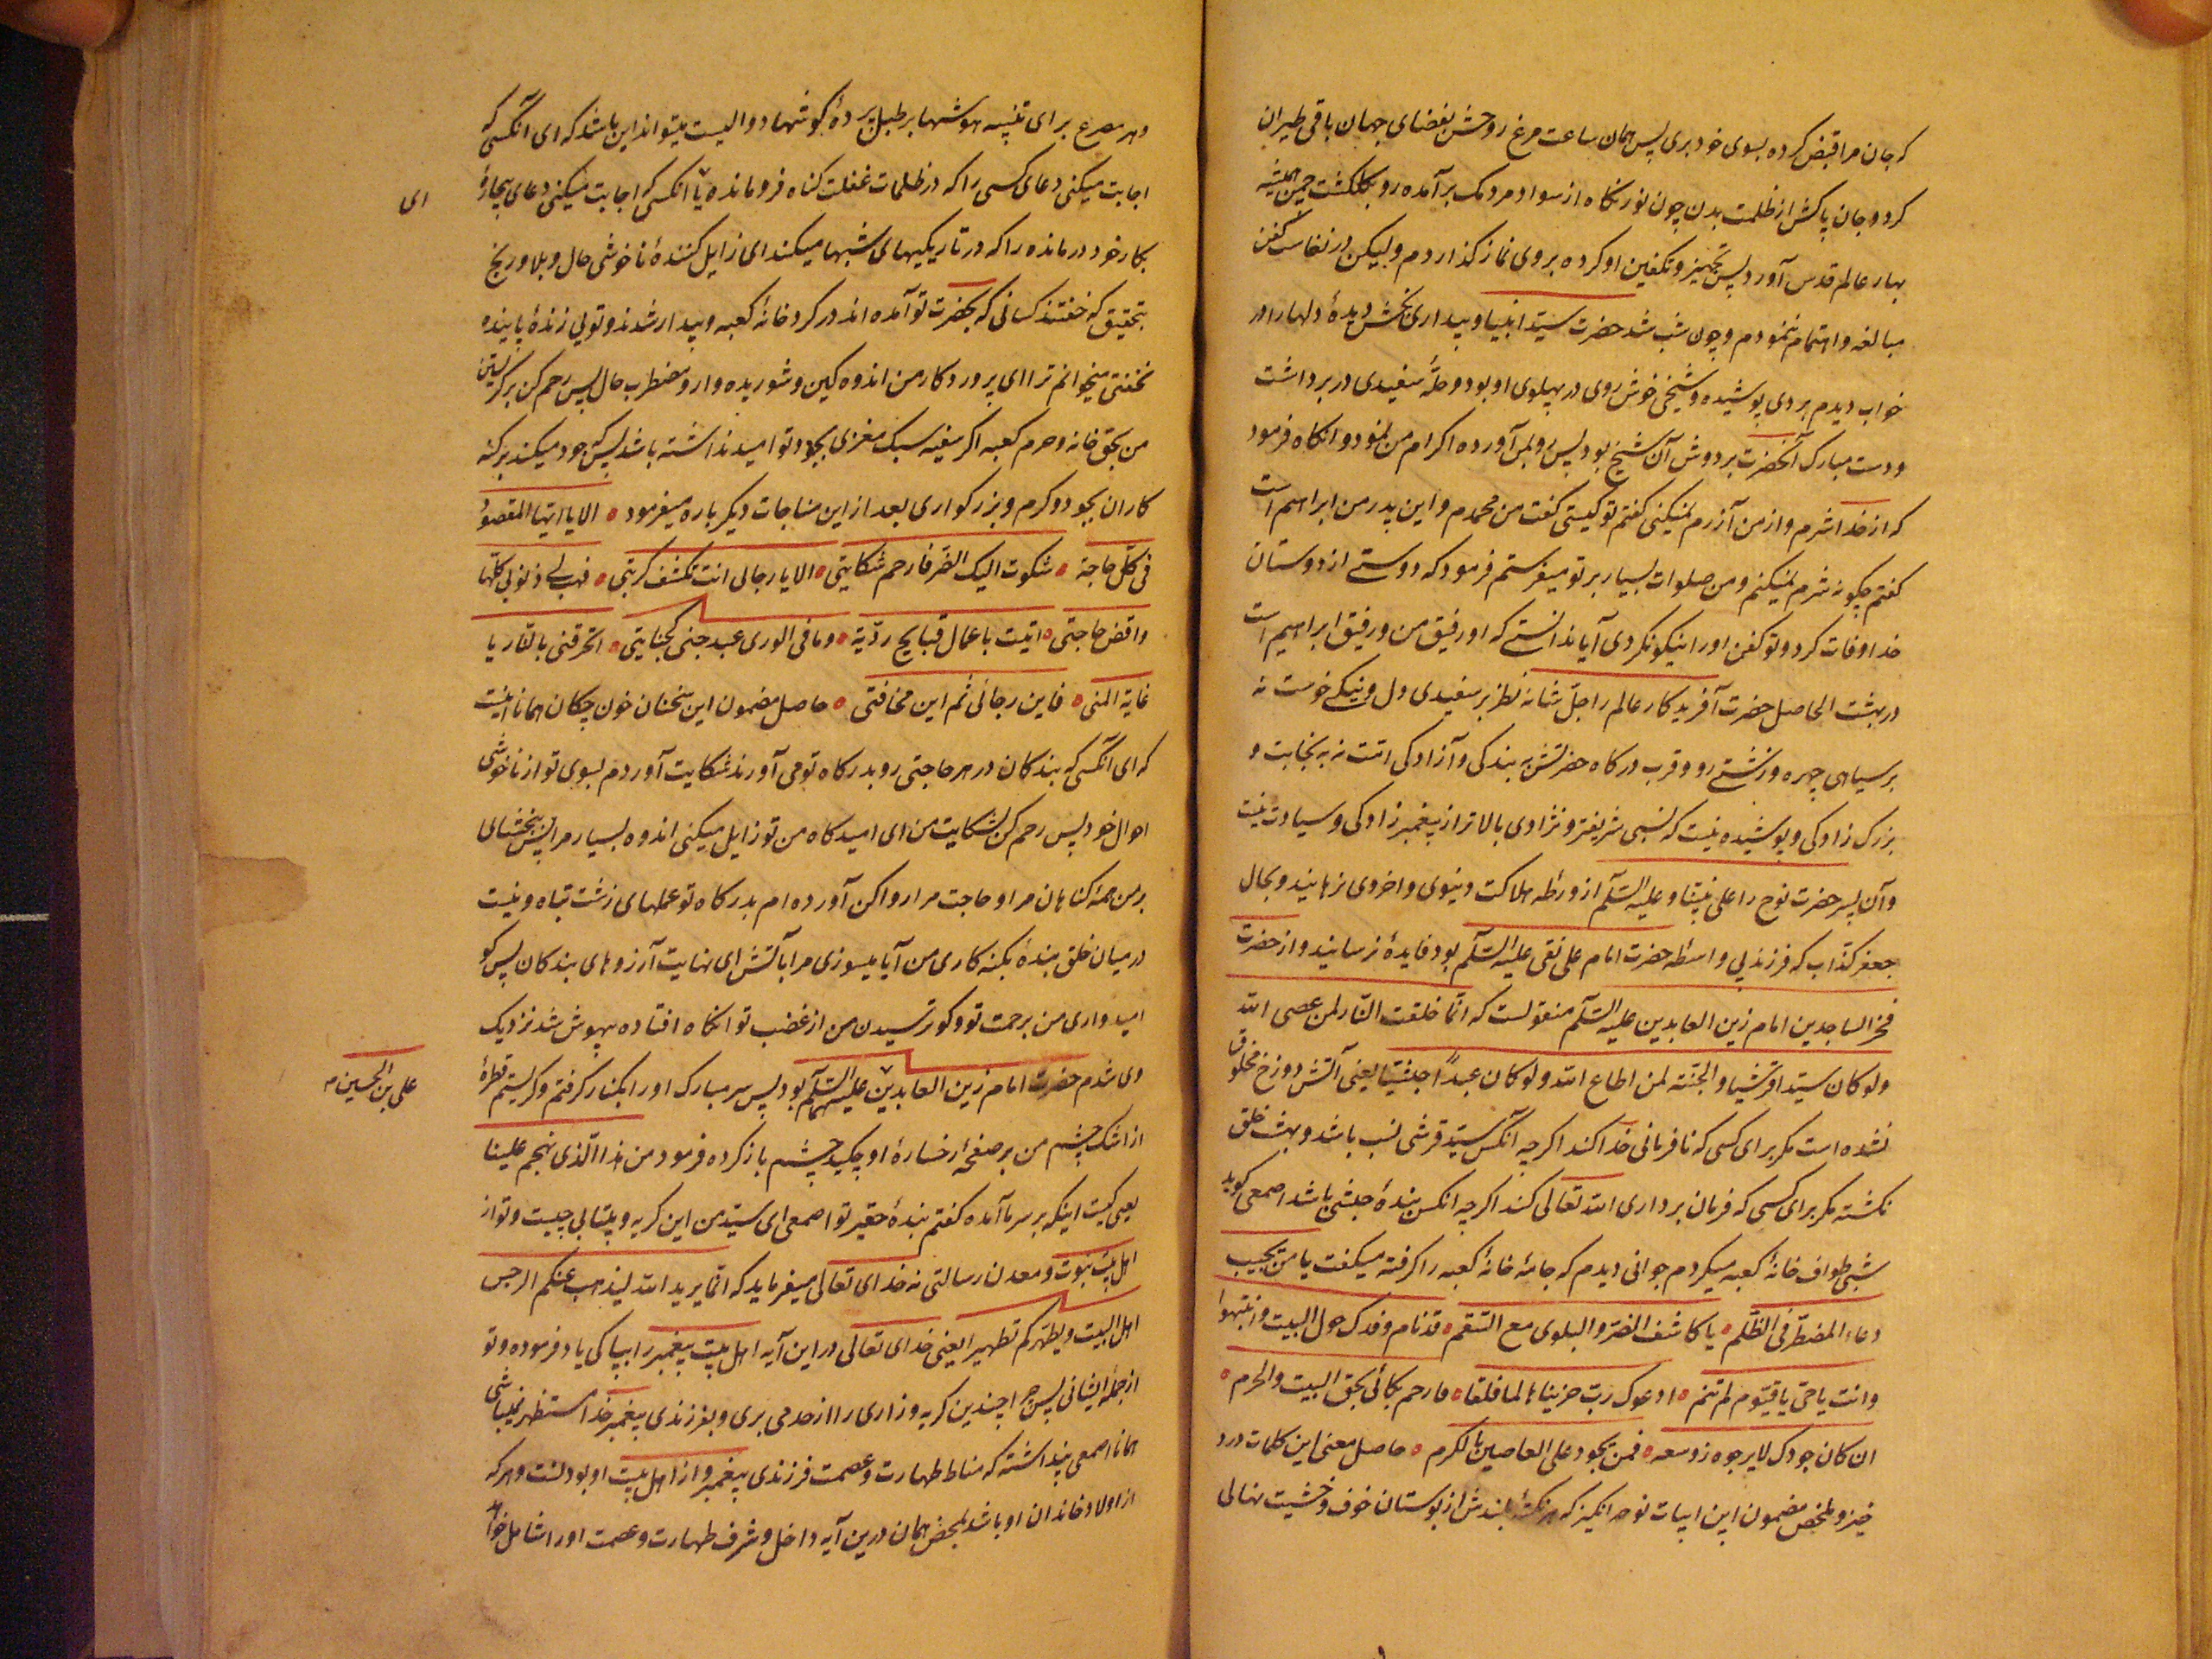 که جان مرا قبض کرده بسوی خود بری پس همان ساعت مرغ روحش بفضای جهان باقی طیران
کرد و جان پاکش از ظلمت بدن چون نور نگاه از سواد مردمک برآمده رو بگلگشت چمن همیشه
بهار عالم قدس آورد پس تجهیز و تکفین او کرده بر وی نماز گذاردم ولیکن در نفاست کفن
مبالغه و اهتمام ننمودم و چون شب شد حضرت سید انبیا و بیداری بخش دیدهٔ دلها را در
خواب دیدم بردی پوشیده و شیخی خوش روی در پهلوی او بود و حلّهٔ سفیدی در برداشت
و دست مبارک آنحضرت بر دوش آن شیخ بود پس رو بمن آورده اکرام من نمود و آنکاه فرمود
که از خدا شرم و از من آزرم نمیکنی کفتم تو کیستی کفت من محمدم و این پدر من ابراهیم است
کفتم چکونه شرم نمیکنم و من صلوات بسیار بر تو میفرستم فرمود که دوستے از دوستان
خدا وفات کرد و تو کفن او را نیکو نکردی آیا ندانستے که او رفیق من و رفیق ابراهیم است
در بهشت الحاصل حضرت آفریدکار عالم را جلّ شانه نظر بر سفیدی دل و نیکے خوست نه
بر سیاهی چهره و زشتے رو و قرب درکاه حضرتش به بندکی و آزادکی است نه به نجابت و
بزرک زادکی و پوشیده نیست که نسبی شریفتر و نژادی بالاتر از پیغمبر زادکی و سیادت نیست
و آن پسر حضرت نوح را علی نبینا و علیه السّلم از ورطهٔ هلاکت دنیوی و اخروی نرهانید و بحال
جعفر کذّاب که فرزند بی واسطهٔ حضرت امام علی نقی علیه السّلم بود فایدهٔ نرسانید و از حضرت
فخر الساجدین امام زین العابدین علیه السّلم منقولست که انّما خلقت النّار لمن عصی الله
ولو کان سیّدا قرشیا و الجنّة لمن اطاع الله ولو کان عبداً حبشیّا یعنی آتش دوزخ مخلوق
نشده است مکر برای کسی که نافرمانی خدا کند اکرچه آنکس سیّد قرشی نسب باشد و بهشت خلق
نکشته مکر برای کسی که فرمان برداری الله تعالی کند اکرچه انکس بندهٔ حبشی باشد اصمعی کوید
شبی طواف خانهٔ کعبه میکردم جوانی دیدم که جامهٔ خانهٔ کعبه را کرفته میکفت یا من یجیب
دعاء المضطرّ فی الظّلم ٥ یا کاشف الضرّ و البلوی مع السّقم ٥ قد نام وفدک حول البیت و انتبهوا
وانت یا حیّ یا قیّوم لم تنم ٥ ادعوک ربّ حزینا هائما قلقا ٥ فارحم بکائی بحقّ البیت و الحرم ٥
ان کان جودک لا یرجوه ذو سعه ٥ فمن یجود علی العاصین بالکرم ٥ حاصل معنی این کلمات درد
خیز و ملخص مضمون این ابیات نوحه انکیز که هر نکتهٔ بلندش از بوستان خوف و خشیت نهالی
و هر مصرع برای تنبیه هوشها بر طبل پردهٔ کوشها دوالیست میتواند این باشد که ای آنکسی که
اجابت میکنی دعای کسی را که در ظلمات غفلت کناه فرومانده یا آنکسی که اجابت میکنی دعای بیچارهٔ
ای
بکار خود درمانده را که در تاریکیهای شبها میکند ای زایل کنندهٔ ناخوشی حال و بلا و رنج
بتحقیق که خفتند کسانی که بحضرت تو آمده اند در کرد خانهٔ کعبه و بیدار شدند و تویی زندهٔ پاینده
نخفتی میخوانم ترا ای پروردکار من اندوه کین و شوریده وار و مضطرب حال پس رحم کن بر کریستن
من بحق خانه و حرم کعبه اکر سفیه سبک مغزی بجود تو امید نداشته باشد پس که جود میکند بر کنه
کاران بجود و کرم و بزرکواری بعد از این مناجات دیکر باره میفرمود ٥ الا یا ایّها المقصود
فی کلّ حاجة ٥ شکوت الیک الضّر فارحم شکایتی ٥ الا یا رجائی انت تکشف کربتی ٥ فهب لے ذنوبی کلّها
واقض حاجتی ٥ اتیت باعمال قبایح ردیّة ٥ وما فی الوری عبد جنی کجنایتی ٥ اتحرقنی بالنّار یا
غایة المنی ٥ فاین رجائی ثم این مخافتی ٥ حاصل مضمون این سخنان خون چکان همانا اینست
که ای آنکسی که بندکان در هر حاجتی رو بدرکاه تو می آورند شکایت آوردم بسوی تو از ناخوشی
احوال خود پس رحم کن بشکایت من ای امیدکاه من تو زایل میکنی اندوه بسیار مرا پس ببخشای
بر من همهٔ کناهان مرا و حاجت مرا روا کن آورده ام بدرکاه تو عملهای زشت تباه و نیست
در میان خلق بندهٔ بکنه کاری من آیا میسوزی مرا بآتش ای نهایت آرزوهای بندکان پس کو
امیدواری من برحمت تو و کو ترسیدن من از غضب تو آنکاه افتاده بیهوش شد نزدیک
وی شدم حضرت امام زین العابدین علیه السّلم بود پس سر مبارک او را بکنار کرفتم و کریستم قطرهٔ
علی بن الحسین م
از اشک چشم من بر صفحهٔ رخسارهٔ او چکید چشم باز کرده فرمود من هذا الّذی یهجم علینا
یعنی کیست اینکه بر سر ما آمده کفتم بندهٔ حقیر تو اصمعی ای سیّد من این کریه و بیتابی چیست و تو از
اهل بیت نبوت و معدن رسالتی نه خدای تعالی میفرماید که انّما یرید الله لیذهب عنکم الرجس
اهل البیت و یطهّرکم تطهیرا یعنی خدای تعالی در این آیه اهل بیت پیغمبر را بپاکی یاد فرموده و تو
از جملهٔ ایشانی پس چرا چندین کریه و زاری را از حد می بری و بفرزندی پیغمبر خدا مستظهر نمیباشی
همانا اصمعی پنداشته که مناط طهارت و عصمت فرزندی پیغمبر و از اهل بیت او بودنست و هر که
از اولاد و خاندان او باشد بمحض همان درین آیه داخل و شرف طهارت و عصمت او را شامل خواهد